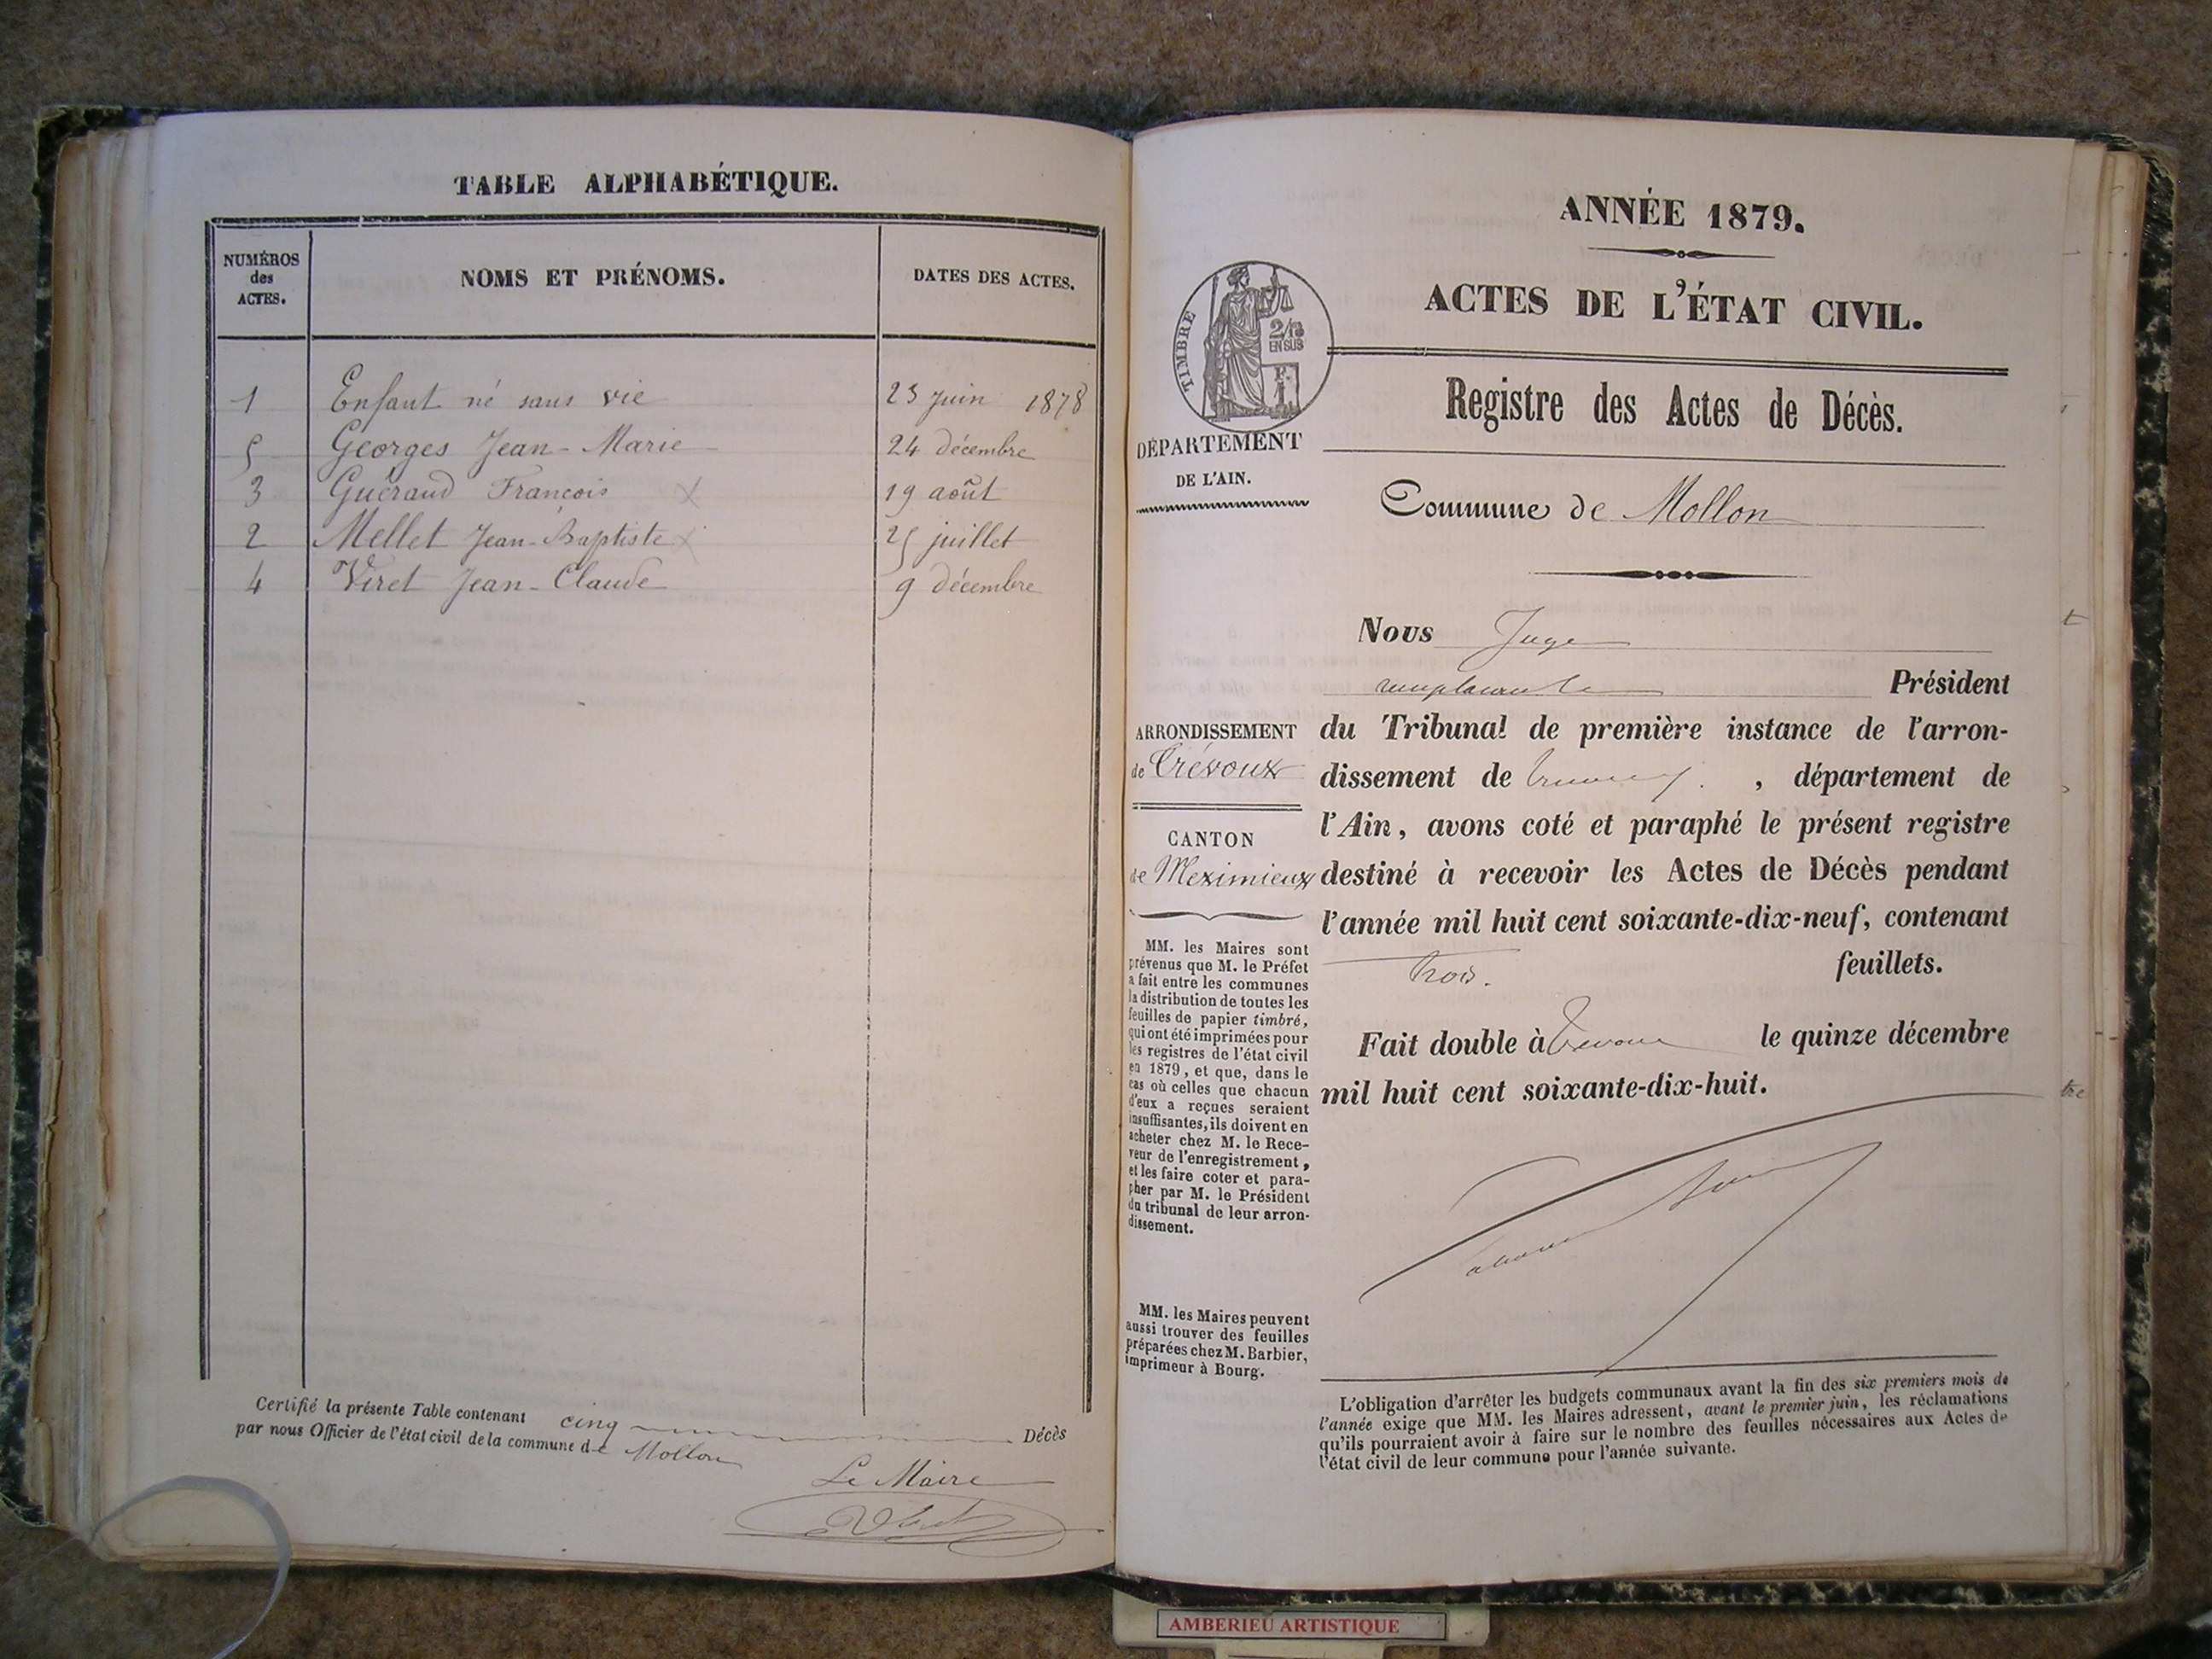 TABLE ALPHABÉTIQUE.
NUMÉROS des ACTES.
NOMS ET PRÉNOMS.
DATES DES ACTES.
1 Enfant né sans vie 23 Juin 1878
5 Georges Jean-Marie 24 décembre
3 Guéraud François 19 août
2 Mellet Jean-Baptiste 25 juillet
4 Viret Jean-Claude 9 décembre
Certifié la présente Table contenant cinq Décès
par nous Officier de l'état civil de la commune de Mollon
Le Maire
ANNÉE 1879.
ACTES DE L'ÉTAT CIVIL.
TIMBRE
2/10
EN SUS
Registre des Actes de Décès.
DÉPARTEMENT
DE L'AIN.
Commune de Mollon
Nous Juge
remplaçant le Président
ARRONDISSEMENT
de Trévoux
du Tribunal de première instance de l'arron-
dissement de Trévoux, département de
l'Ain, avons coté et paraphé le présent registre
CANTON
de Meximieux
destiné à recevoir les Actes de Décès pendant
l'année mil huit cent soixante-dix-neuf, contenant
Trois. feuillets.
Fait double à Trévoux le quinze décembre
mil huit cent soixante-dix-huit.
MM. les Maires sont
prévenus que M. le Préfet
a fait entre les communes
la distribution de toutes les
feuilles de papier timbré,
qui ont été imprimées pour
les registres de l'état civil
en 1879, et que, dans le
cas où celles que chacun
d'eux a reçues seraient
insuffisantes, ils doivent en
acheter chez M. le Rece-
veur de l'enregistrement,
et les faire coter et para-
pher par M. le Président
du tribunal de leur arron-
dissement.
MM. les Maires peuvent
aussi trouver des feuilles
préparées chez M. Barbier,
imprimeur à Bourg.
L'obligation d'arrêter les budgets communaux avant la fin des six premiers mois de
l'année exige que MM. les Maires adressent, avant le premier juin, les réclamations
qu'ils pourraient avoir à faire sur le nombre des feuilles nécessaires aux Actes de
l'état civil de leur commune pour l'année suivante.
AMBERIEU ARTISTIQUE